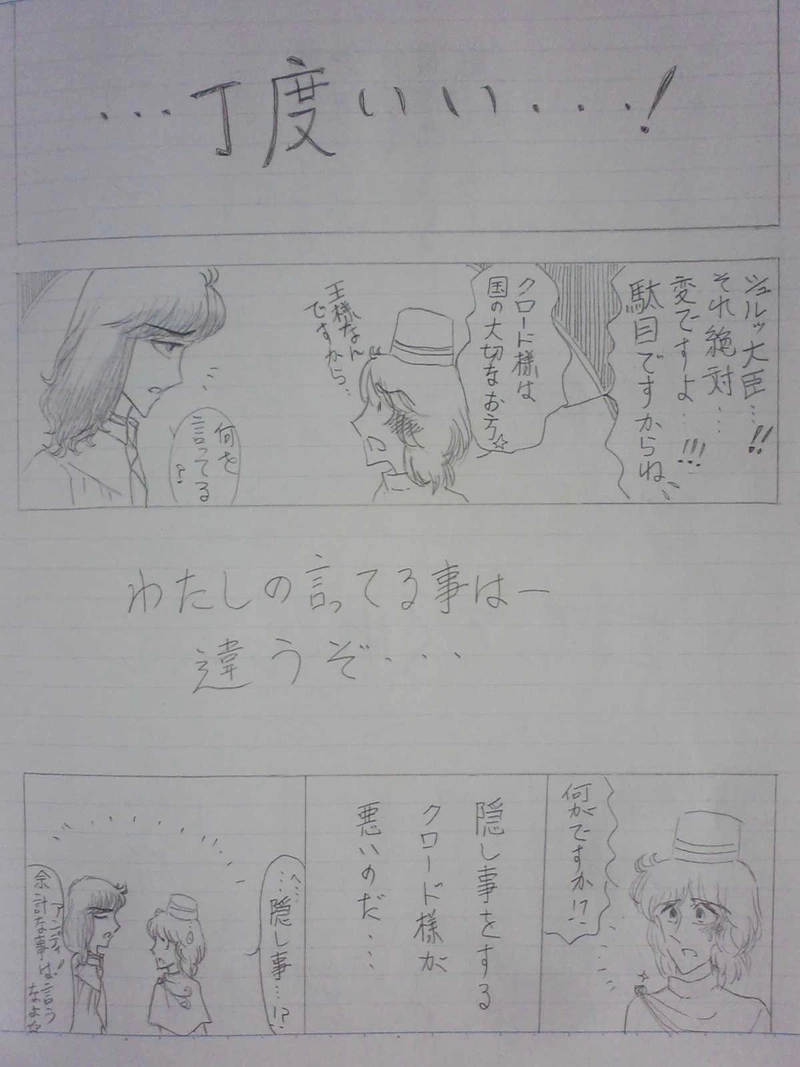 …丁度いい…!
シュルッ大臣…!!
それ絶対…
変ですよ…!!!
駄目ですからね
クロード様は
国の大切なお方☆
王様なん
ですから…
何を
言ってる
?
わたしの言ってる事は一
違うぞ…
何がですか!?
隠し事をする
クロード様が
悪いのだ…
へ…
…隠し事…!?
アンディ
余計な事は言う
なよ☆